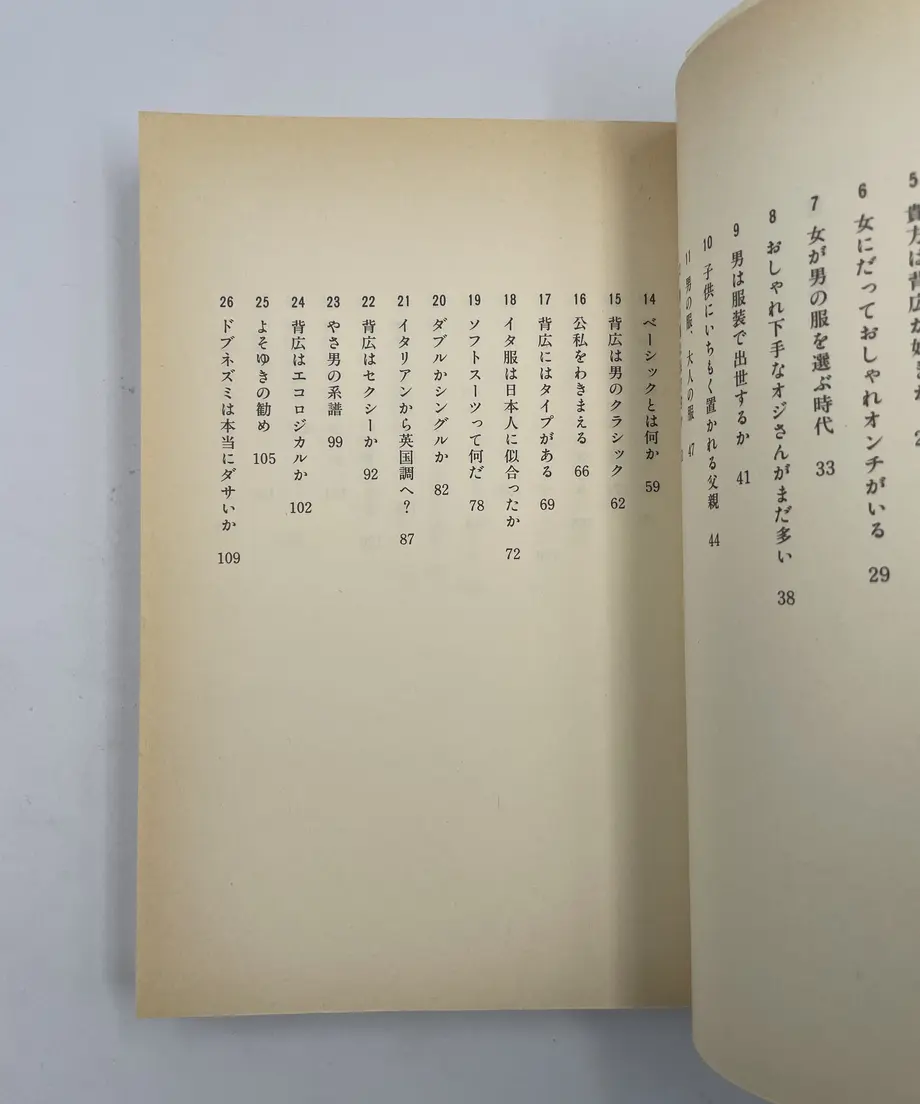 5 貴方は背広が
6 女にだっておしゃれオンチがいる 29
7 女が男の服を選ぶ時代 33
8 おしゃれ下手なオジさんがまだ多い 38
9 男は服装で出世するか 41
10 子供にいちもく置かれる父親 44
11 男の服、大人の服 47
14 ベーシックとは何か 59
15 背広は男のクラシック 62
16 公私をわきまえる 66
17 背広にはタイプがある 69
18 イタ服は日本人に似合ったか 72
19 ソフトスーツって何だ 78
20 ダブルかシングルか 82
21 イタリアンから英国調へ? 87
22 背広はセクシーか 92
23 やさ男の系譜 99
24 背広はエコロジカルか 102
25 よそゆきの勧め 105
26 ドブネズミは本当にダサいか 109